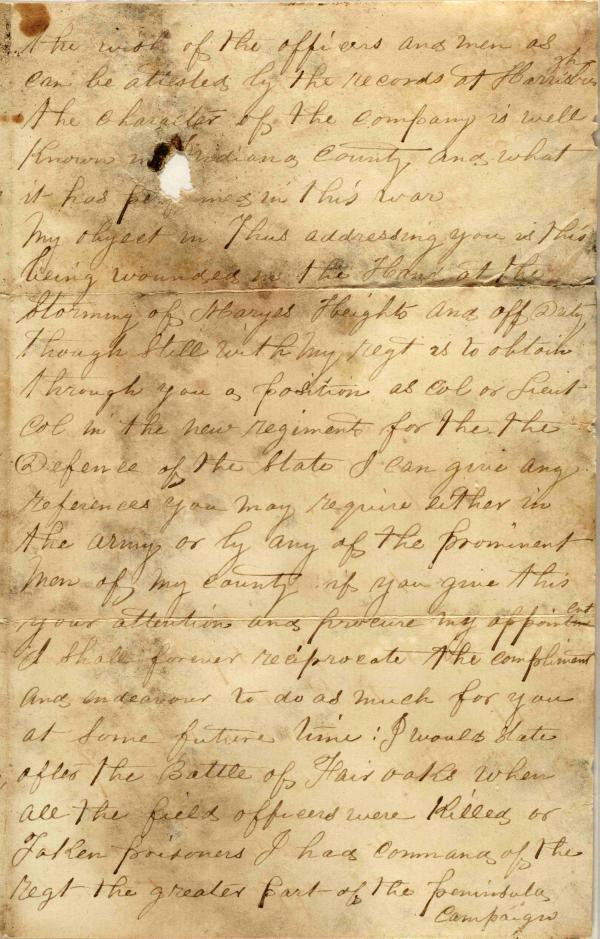 the wish of the officers and men as
can be attested by the records at
the character of the company is well
Known in Indiana County and what
it has in this war
My object in Thus addressing you is this
being wounded in the Hand at the
Storming of Maryes Heights and off Duty
though Still with my regt is to obtain
through you a position as Col or Lieut
Col in the new regiment for the the
Defence of the State I can give any
references you may require either in
the army or by any of the prominent
men of my county if you give this
your attention and procure my appointment
I shall forever reciprocate the compliment
and endeavour to do as much for you
at Some future time : I would state
after the Battle of Fair oaks when
all the field officers were Killed or
Taken prisoners I had command of the
regt the greater Part of the peninsula
Campaign